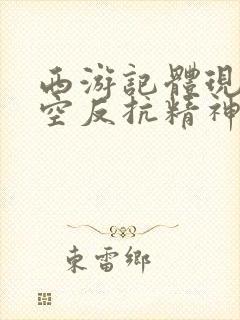 西游記體現
空反抗精神
東雷鄉